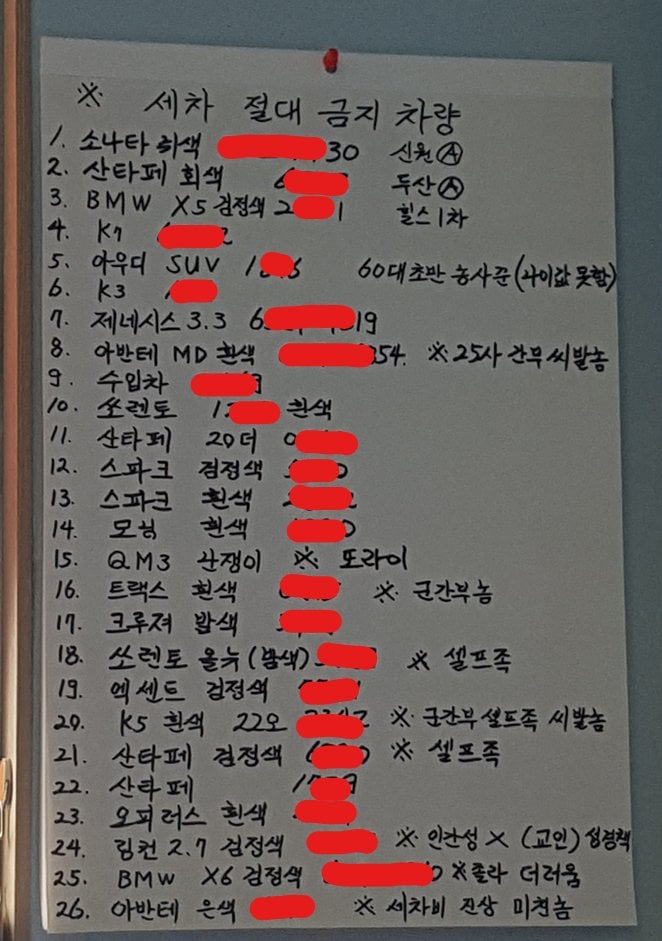 ※ 세차 절대 금지 차량
1. 소나타 회색 30 신원Ⓐ
2. 산타페 회색 6 두산Ⓐ
3. BMW X5 검정색 2 1 힐스 1차
4. K7
5. 아우디 SUV 1 6 60대초반 농사꾼 (나이값 못함)
6. K3
7. 제네시스 3.3 6 19
8. 아반테 MD 흰색 354. ※ 25사 간부 씨발놈
9. 수입차 9
10. 쏘렌토 12 흰색
11. 산타페 20더 0
12. 스파크 검정색 0
13. 스파크 흰색 2
14. 모닝 흰색 0
15. QM3 난쟁이 ※ 또라이
16. 트랙스 흰색 ※ 군간부놈
17. 크루져 밤색
18. 쏘렌토 올뉴 (밤색) ※ 셀프족
19. 엑센트 검정색
20. K5 흰색 22오 2 ※ 군간부 셀프족 씨발놈
21. 산타페 검정색 6 0 ※ 셀프족
22. 산타페 17 9
23. 오피러스 흰색
24. 링컨 2.7 검정색 ※ 인간성 X (교인) 성경책
25. BMW X6 검정색 0 ※ 졸라 더러움
26. 아반테 은색 ※ 세차비 진상 미친놈